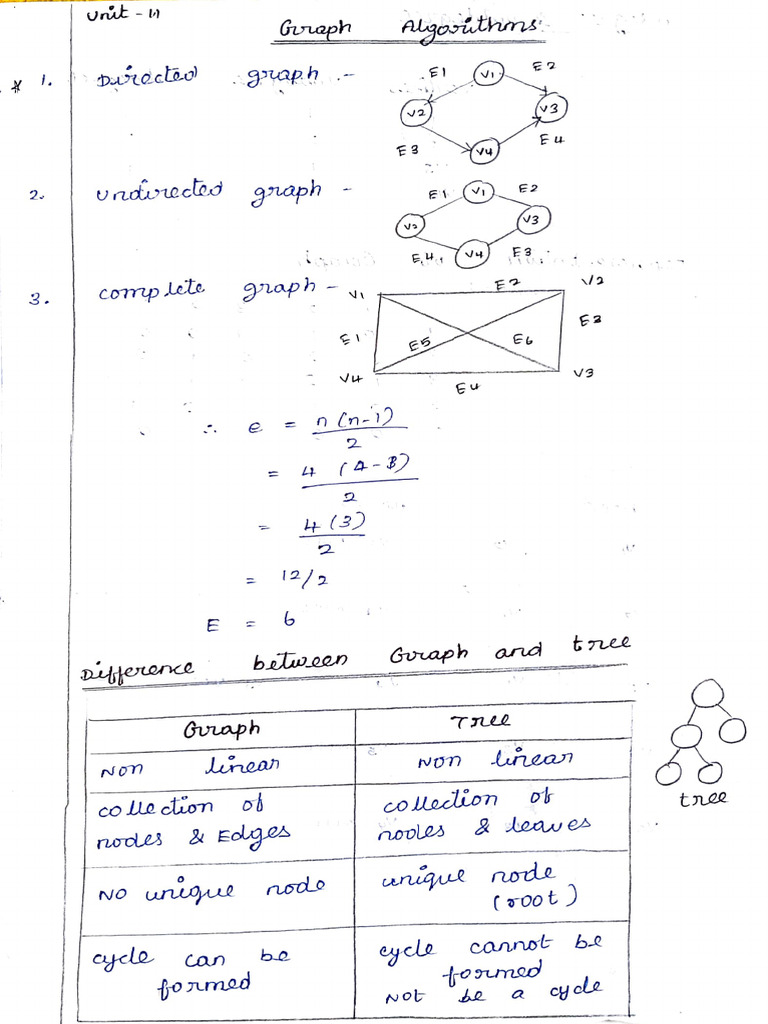 Unit - III
Graph Algorithms:-
* 1. Directed graph :-
E1 V1 E2
V2 V3
E3 V4 E4
2. Undirected graph -
E1 V1 E2
V2 V3
E4 V4 E3
3. Complete graph -
V1 E2 V2
E1 E5 E6 E3
V4 E4 V3
∴ e = n(n-1)/2
= 4(4-3)/2
= 4(3)/2
= 12/2
E = 6
Difference between Graph and tree
Graph Tree
Non linear Non linear
collection of nodes & Edges collection of nodes & leaves
tree
No unique node unique node (root)
cycle can be formed cycle cannot be formed
Not be a cycle